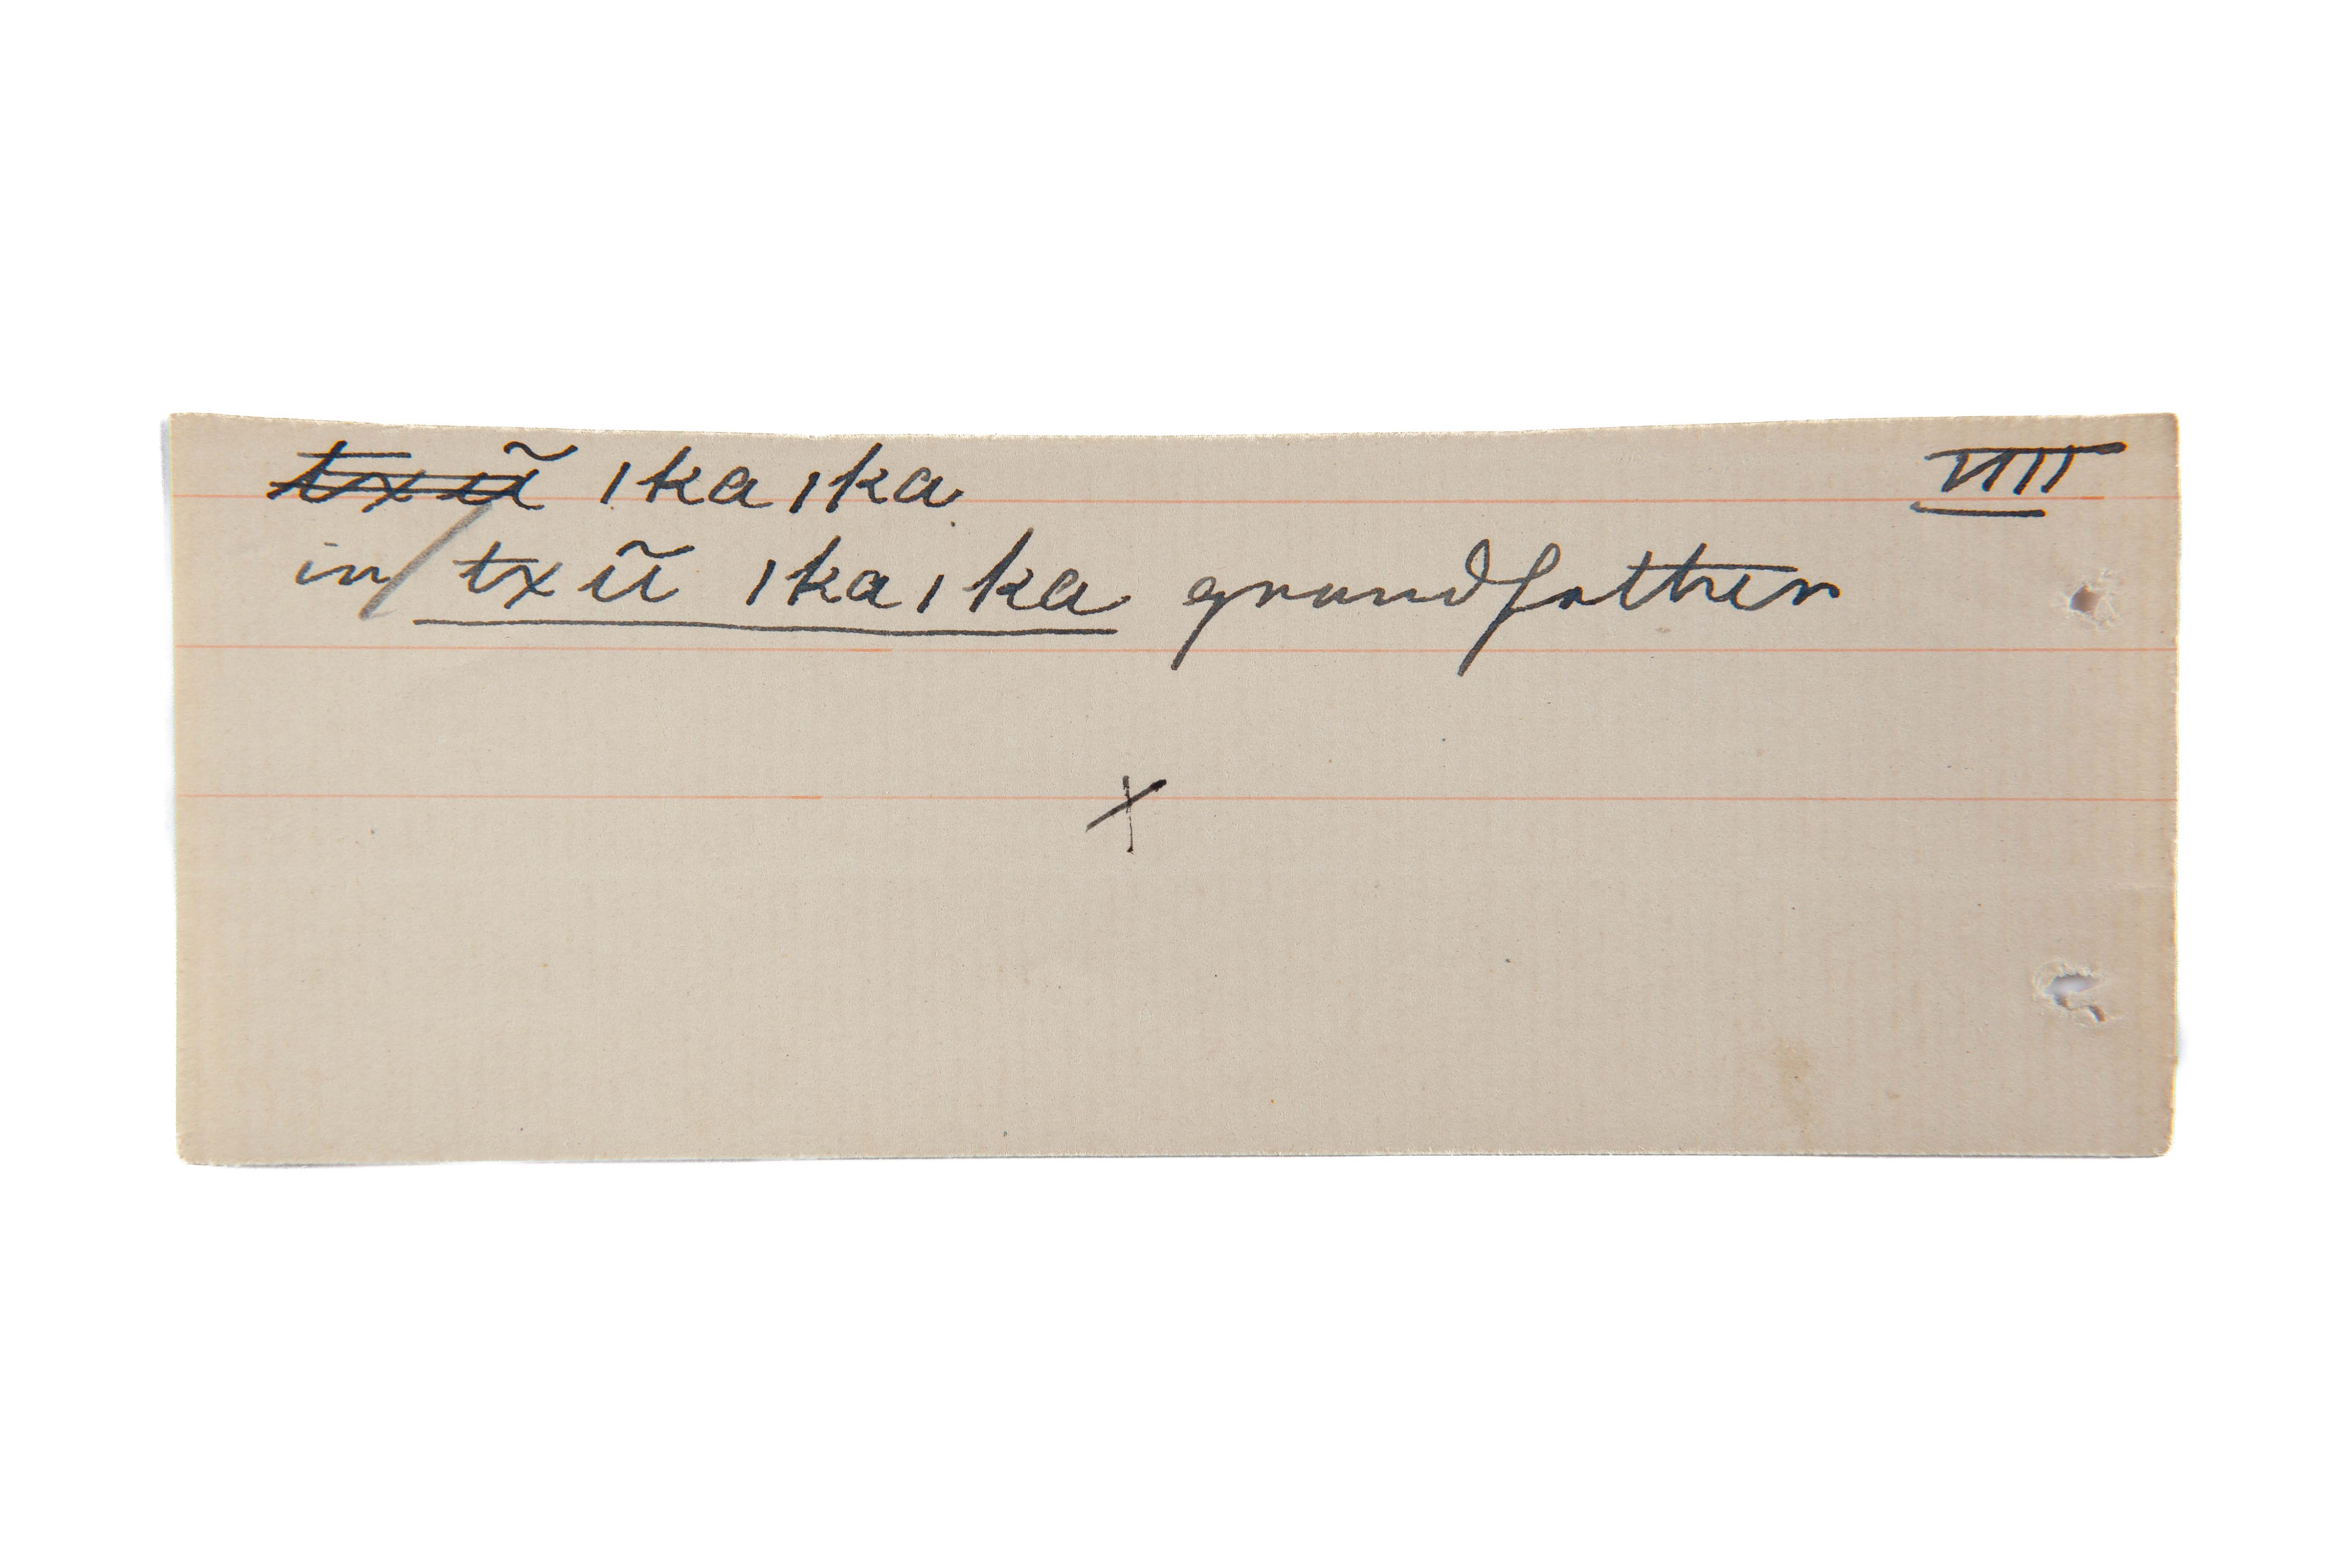 txũ ǀkaǀka VIII
in/ txũ ǀkaǀka grandfather
x